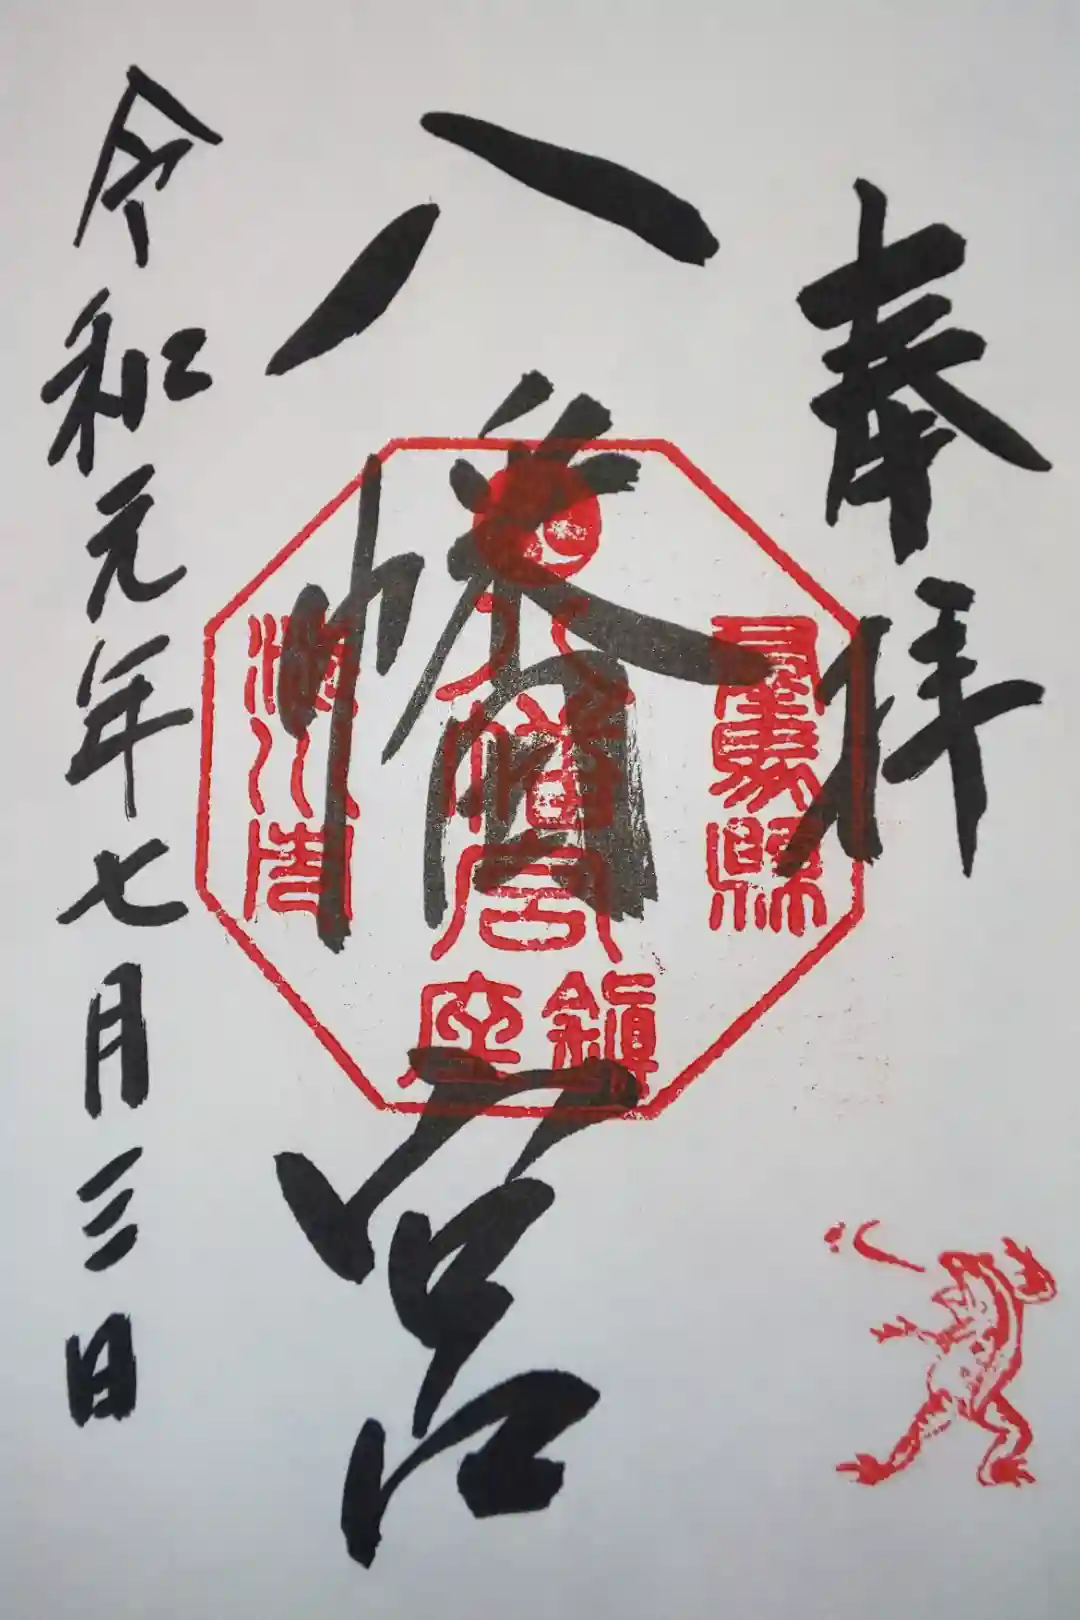 奉拝
八幡宮
令和元年七月三日
八幡宮
鎮座
川市
馬縣